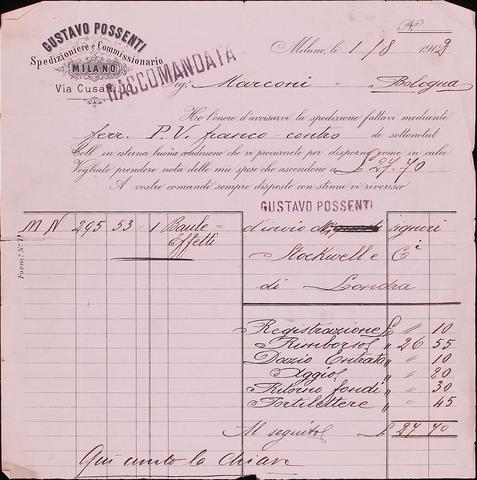 GUSTAVO POSSENTI
Spedizioniere e Commissionario
MILANO
Via Cusani, 10
RACCOMANDATA
N.
Milano, li 1/8 1902
Sigr Marconi Bologna
Ho l'onore d'avvisarvi la spedizione fattavi mediante
ferr. P.V. franco-contro de sottonotati
Colli in esterna buona condizione che vi procurerete per disporne come in calce
Vogliate prendere nota delle mie spese che ascendono a £ 27.70
A vostri comandi sempre disposto con stima vi riverisco
GUSTAVO POSSENTI
Form: N. 71
M N 295 53 1 Baule
Effetti
d'invio signori
Stockwell e Ci
di Londra
Registrazione £ " 10
Rimborso " 26 55
Dazio Entrata " " 10
Aggio " " 20
Ritorno fondi " " 30
Portilettere " " 45
Al seguito £ 27 70
Qui unito la chiave